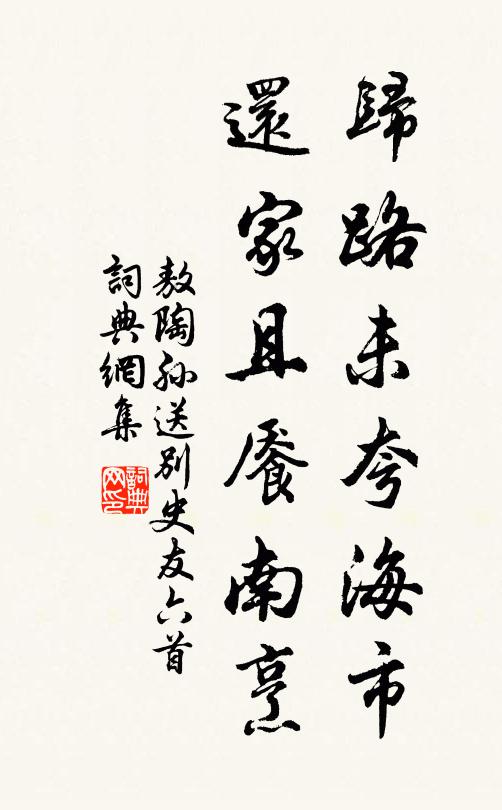 歸路未夸海市
還家且饜南烹
敖陶孫送別史友六首
詞典網集
詞典网印